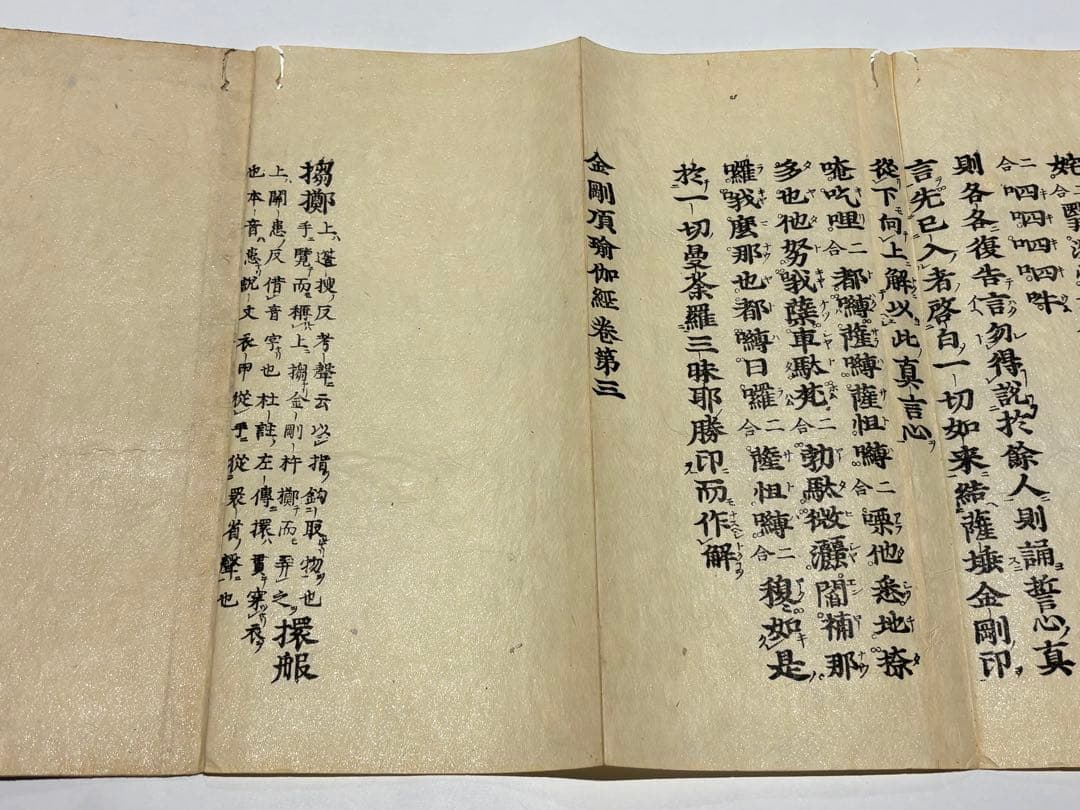 二合呬呬呬呬吽
則各各復告言勿得說於餘人則誦誓心真
言先已入者啓白一切如来結薩埵金剛印
從下向上解以此真言心
唵吃哩二合都嚩薩嚩薩怛嚩二合㗚他悉地捺
多也他努誐蘖車駄梵二合勃駄微灑閻補那
囉誐麼那也都嚩日囉二合薩怛嚩二合 如是
於一切曼荼羅三昧耶勝印而作解
金剛頂瑜伽經卷第三
搊擲上 搜反考聲云以指鉤取物也
手覽而稱上搊金剛杵擲而弄之擐服
上關患反借音字也杜註左傳擐貫穿衣
也本音患說文衣甲從手從睘省聲也